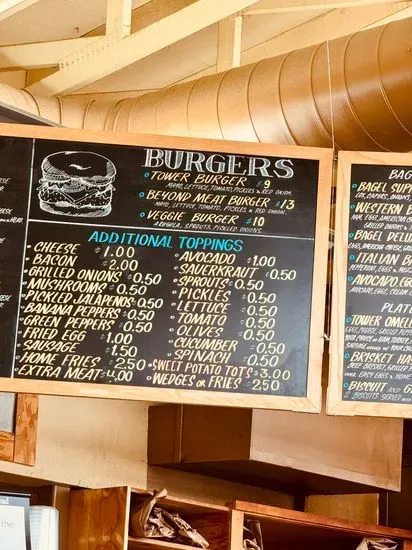 BURGERS
TOWER BURGER $9
MAYO, LETTUCE, TOMATO, PICKLES & RED ONION.
BEYOND MEAT BURGER $13
MAYO, LETTUCE, TOMATO, PICKLES & RED ONION.
VEGGIE BURGER $10
ARUGULA, SPROUTS, PICKLED ONIONS.
ADDITIONAL TOPPINGS
CHEESE $1.00
BACON $2.00
GRILLED ONIONS $0.50
MUSHROOMS $0.50
PICKLED JALAPENOS $0.50
BANANA PEPPERS $0.50
GREEN PEPPERS $0.50
FRIED EGG $1.00
SAUSAGE $1.50
HOME FRIES $2.50
EXTRA MEAT $4.00
AVOCADO $1.00
SAUERKRAUT $0.50
SPROUTS $0.50
PICKLES $0.50
LETTUCE $0.50
TOMATO $0.50
OLIVES $0.50
CUCUMBER $0.50
SPINACH $0.50
SWEET POTATO TOTS $3.00
WEDGES OR FRIES $2.50
BAG
BAGEL SUP
WESTERN B
BAGEL DELU
ITALIAN B
AVOCADO EG
PLAT
TOWER OMEL
BRISKET HA
BISCUIT AND G
2 BISCUITS SERVED WIT